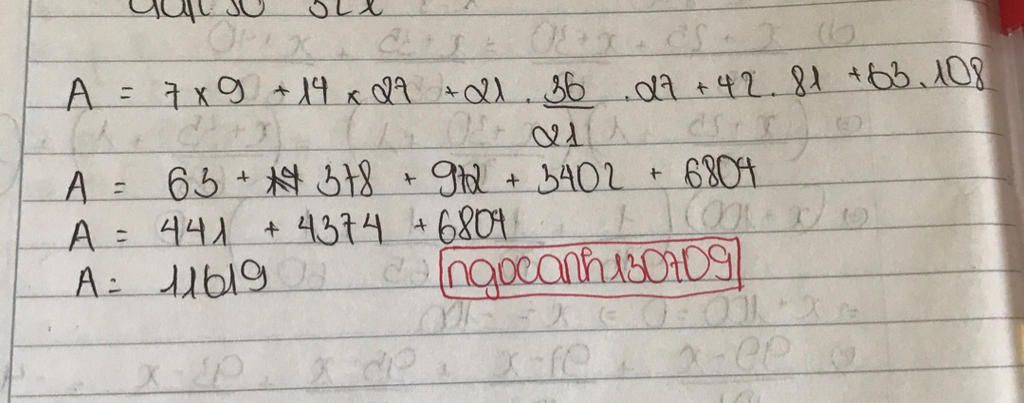 A = 7 x 9 + 14 x 27 + 21 . 36/21 . 27 + 42 . 81 + 63 . 108
A = 63 + 378 + 972 + 3402 + 6804
A = 441 + 4374 + 6804
A = 11619
ngocanh130709